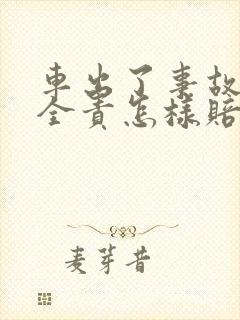 車出了事故
全責怎樣賠
麦芽昔